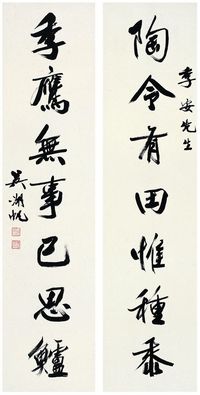 陶令有田惟種黍
季安先生
季鷹無事已思鱸
吳湖帆